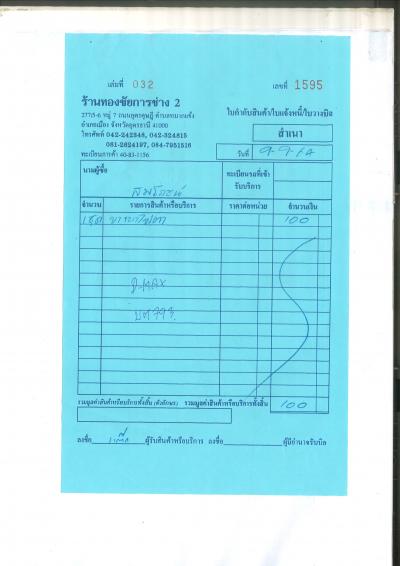 เล่มที่ 032 เลขที่ 1595
ร้านทองชัยการช่าง 2
277/5-6 หมู่ 7 ถนนอุดรดุษฎี ตำบลหมากแข้ง
อำเภอเมือง จังหวัดอุดรธานี 41000
โทรศัพท์ 042-242348, 042-324815
081-2624197, 084-7951516
ทะเบียนการค้า 40-83-1156
ใบกำกับสินค้า/ใบแจ้งหนี้/ใบวางบิล
สำเนา
วันที่
นามผู้ซื้อ
ทะเบียนรถที่เข้ารับบริการ
จำนวน รายการสินค้าหรือบริการ ราคาต่อหน่วย จำนวนเงิน
100
D-MAX
รวมมูลค่าสินค้าหรือบริการทั้งสิ้น (ตัวอักษร) รวมมูลค่าสินค้าหรือบริการทั้งสิ้น 100
ลงชื่อ ผู้รับสินค้าหรือบริการ ลงชื่อ ผู้มีอำนาจรับบิล